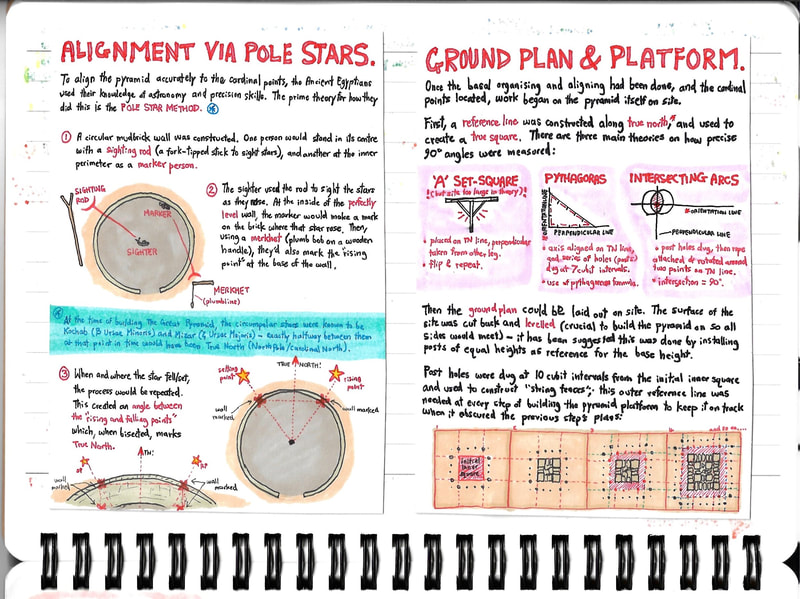 ALIGNMENT VIA POLE STARS.
To align the pyramid accurately to the cardinal points, the Ancient Egyptians
used their knowledge of astronomy and precision skills. The prime theory for how they
did this is the POLE STAR METHOD.
① A circular mudbrick wall was constructed. One person would stand in its centre
with a sighting rod (a fork-tipped stick to sight stars), and another at the inner
perimeter as a marker person.
SIGHTING
ROD
MARKER
SIGHTER
② The sighter used the rod to sight the stars
as they rose. At the inside of the perfectly
level wall, the marker would make a mark
on the brick where that star rose. Then,
using a merkhet (plumb bob on a wooden
handle), they'd also mark the "rising
point" at the base of the wall.
MERKHET
(plumbline)
At the time of building The Great Pyramid, the circumpolar stars were known to be
Kochab (B Ursae Minoris) and Mizar (ζ Ursae Majoris) - exactly halfway between them
at that point in time would have been True North (North Pole/Cardinal North).
③ When and where the star fell/set,
the process would be repeated.
This created an angle between
the "rising and falling points"
which, when bisected, marks
True North.
setting
point
TRUE NORTH:
rising
point
wall
marked
wall marked
SP
TN:
RP
wall
marked
wall
marked
GROUND PLAN & PLATFORM.
Once the basal organising and aligning had been done, and the cardinal
points located, work began on the pyramid itself on site.
First, a reference line was constructed along true north, and used to
create a true square. There are three main theories on how precise
90° angles were measured:
'A' SET-SQUARE
(but site too large in theory)!
• placed on TN line, perpendicular
taken from other leg.
• flip & repeat.
PYTHAGORAS
ORIENTATION LINE
PERPENDICULAR LINE
• axis aligned on TN line,
and series of holes (posts)
dug at 7 cubit intervals.
• use of pythagorean formula.
INTERSECTING ARCS
ORIENTATION LINE
PERPENDICULAR LINE
• post holes dug, then rope
attached & rotated around
two points on TN line.
• intersection = 90°.
Then the ground plan could be laid out on site. The surface of the
site was cut back and levelled (crucial to build the pyramid on so all
sides would meet) - it has been suggested this was done by installing
posts of equal heights as reference for the base height.
Post holes were dug at 10 cubit intervals from the initial inner square
and used to construct "string fences"; this outer reference line was
needed at every step of building the pyramid platform to keep it on track
when it obscured the previous step's plans:
and so on....
initial
inner
square